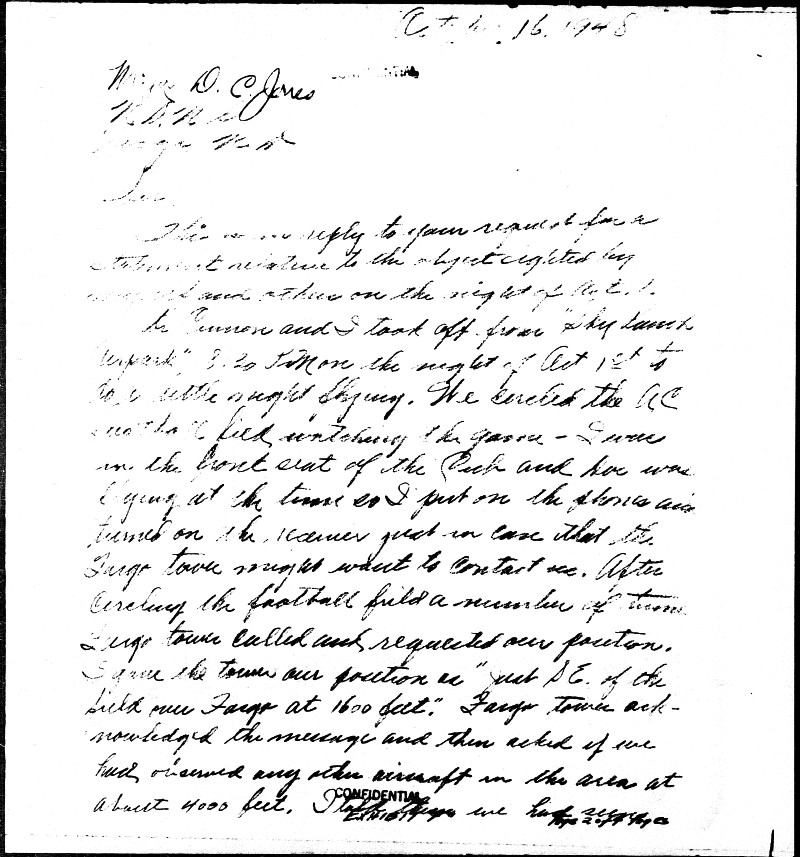 October 16, 1948
CONFIDENTIAL
Major D. C. Jones
N.D.N.G
Fargo N D
Sir
This is in reply to your request for a
statement relative to the object sighted by
myself and others on the night of Oct. 1.
Dr Cannon and I took off from "Sky Ranch
Airpark" 8:20 PM on the night of Oct 1st to
do a little night flying. We circled the AC
football field watching the game - I was
in the front seat of the Cub and Doc was
flying at the time so I put on the phones and
turned on the receiver just in case that the
Fargo tower might want to contact us. After
circling the football field a number of times
Fargo tower called and requested our position.
I gave the tower our position as "just SE. of the
field over Fargo at 1600 feet". Fargo tower ack-
nowledged the message and then asked if we
had observed any other aircraft in the area at
about 4000 feet. I told them we had
CONFIDENTIAL